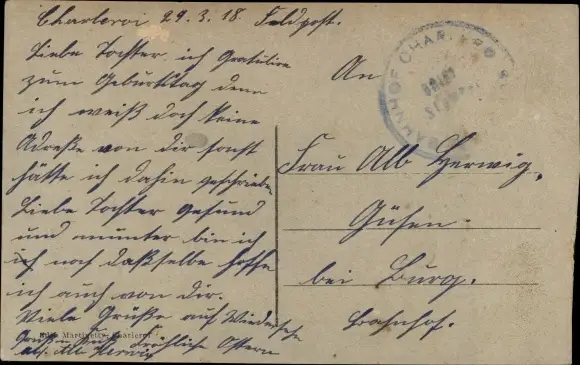 Charleroi 29.3.18. Feldpost.
Liebe Tochter ich Gratulire
zum Geburtstag denn
ich weiß doch keine
Adreße von dir sonst
hätte ich dahin geschrieben
Liebe Tochter Gesund
und munter bin ich
ich noch daßselbe hoffe
ich auch von dir.
Viele Grüße auf Wiedersehn
Gruß u Kuß Fröhliche Ostern
Alb. Herwig
Edit. Martinetti, Charleroi
An
Frau Alb Herwig.
Güsen.
bei Burg.
Bahnhof.
BAHNHOF CHARLEROI
BRIEF
STEMPEL